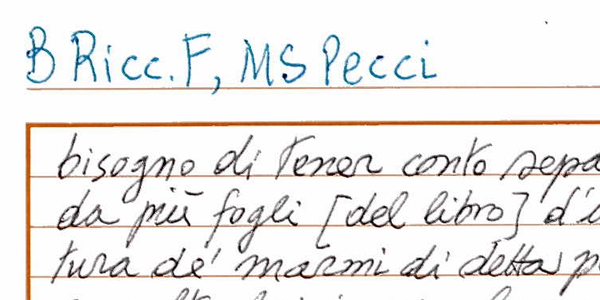 B Ricc. F, MS Pecci
bisogno di tener conto sepa
da più fogli [del libro] d'i
tura de' marmi di detta p